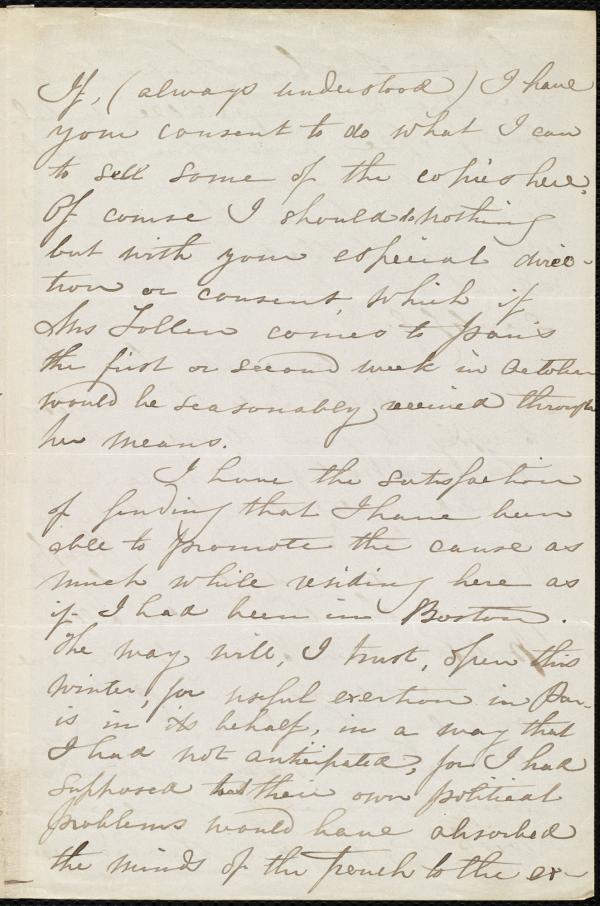 If, (always understood) I have
your consent to do what I can
to sell some of the copies here.
Of course I should do nothing
but with your especial direc-
tion or consent, which if
Mrs Follen comes to Paris
the first or second week in October
would be seasonably received through
her means.
I have the satisfaction
of finding that I have been
able to promote the cause as
much while residing here as
if I had been in Boston.
The way will, I trust, open this
winter, for useful exertion in Par-
is in its behalf, in a way that
I had not anticipated, for I had
supposed that their own political
problems would have absorbed
the minds of the french to the ex-